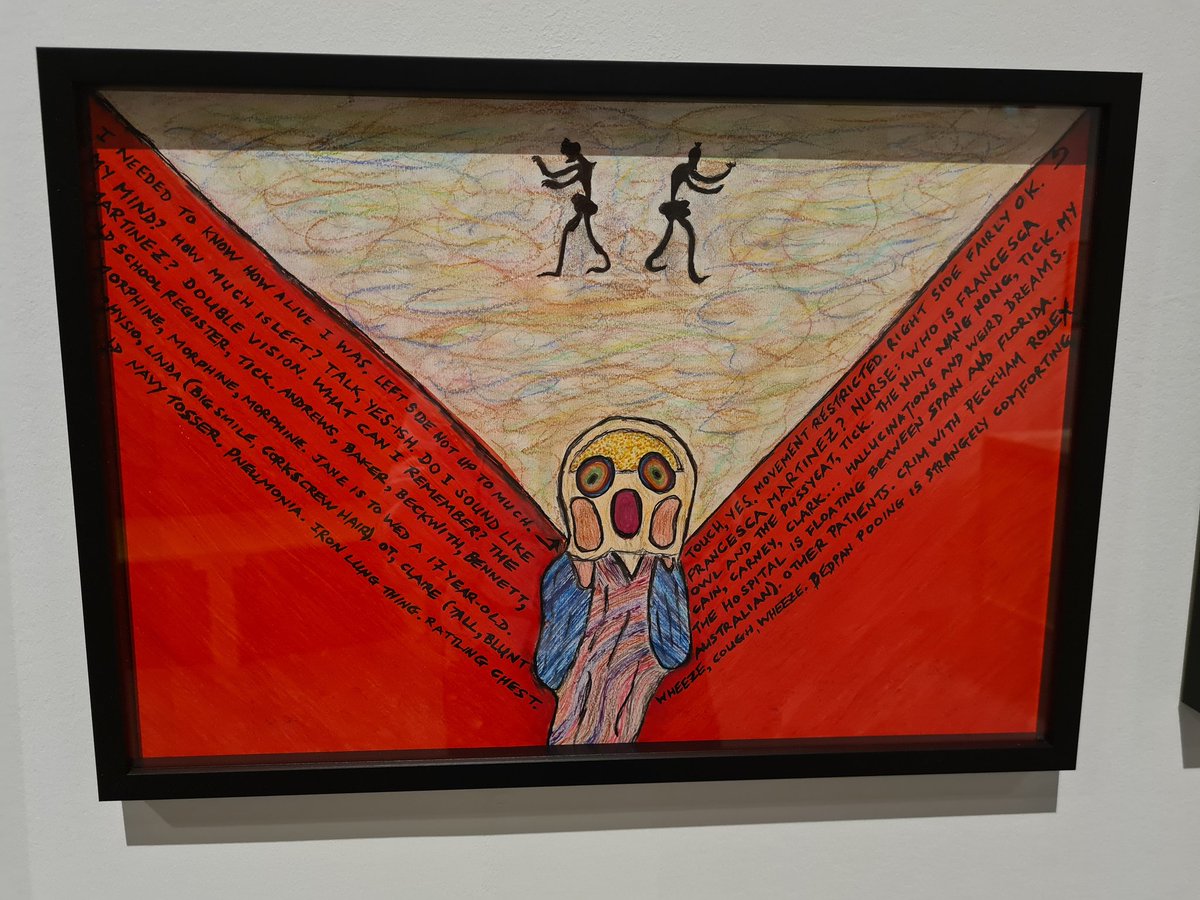 I NEEDED TO KNOW HOW ALIVE I WAS. LEFT SIDE NOT UP TO MUCH.
MY MIND? HOW MUCH IS LEFT? TALK, YES ISH. DO I SOUND LIKE
MARTINEZ? DOUBLE VISION. WHAT CAN I REMEMBER? THE
OLD SCHOOL REGISTER, TICK. ANDREWS, BAKER, BECKWITH, BENNETT,
MORPHINE, MORPHINE, MORPHINE. JANE IS TO WED A 17 YEAR OLD.
PHYSIO, LINDA (BIG SMILE, CORKSCREW HAIR) OT, CLAIRE (TALL, BLUNT
NAVY TOSSER, PNEUMONIA. IRON LUNG THING. RATTLING CHEST.
TOUCH, YES. MOVEMENT RESTRICTED. RIGHT SIDE FAIRLY OK. ?
FRANCESCA MARTINEZ? NURSE: 'WHO IS FRANCESCA
OWL AND THE PUSSYCAT, TICK. THE NING NANG NONG, TICK. MY
CAIN, CARNEY, CLARK... HALLUCINATIONS AND WEIRD DREAMS.
THE HOSPITAL IS FLOATING BETWEEN SPAIN AND FLORIDA.
AUSTRALIAN). OTHER PATIENTS. CRIM WITH PECKHAM ROLEX
WHEEZE, COUGH, WHEEZE. BEDPAN POOING IS STRANGELY COMFORTING